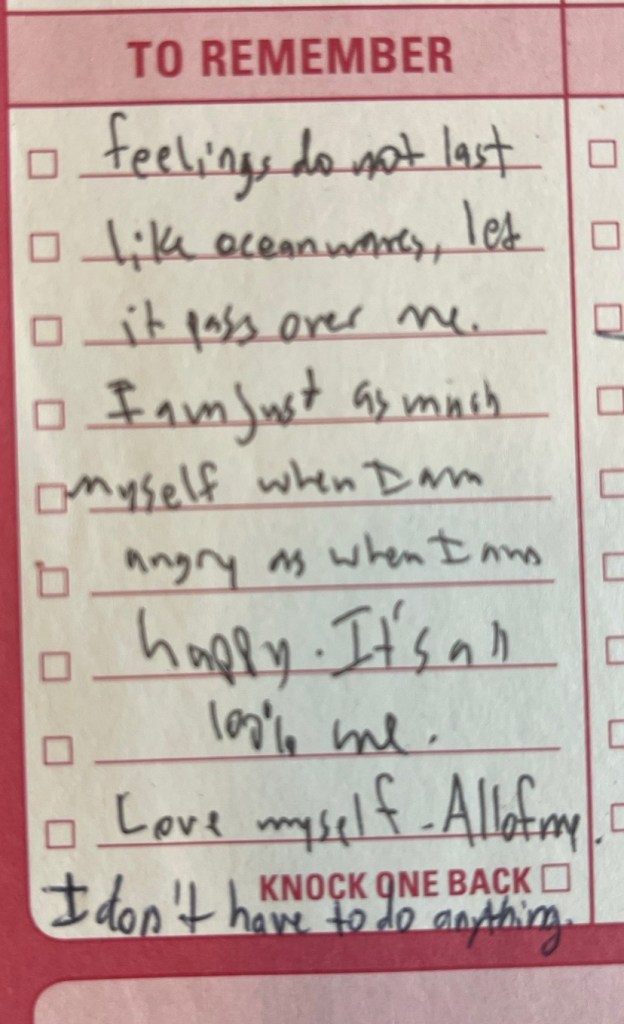 TO REMEMBER
feelings do not last
like ocean waves, let
it pass over me.
I am just as much
myself when I am
angry as when I am
happy. It's all
100% me.
Love myself - All of my.
KNOCK ONE BACK
I don't have to do anything.